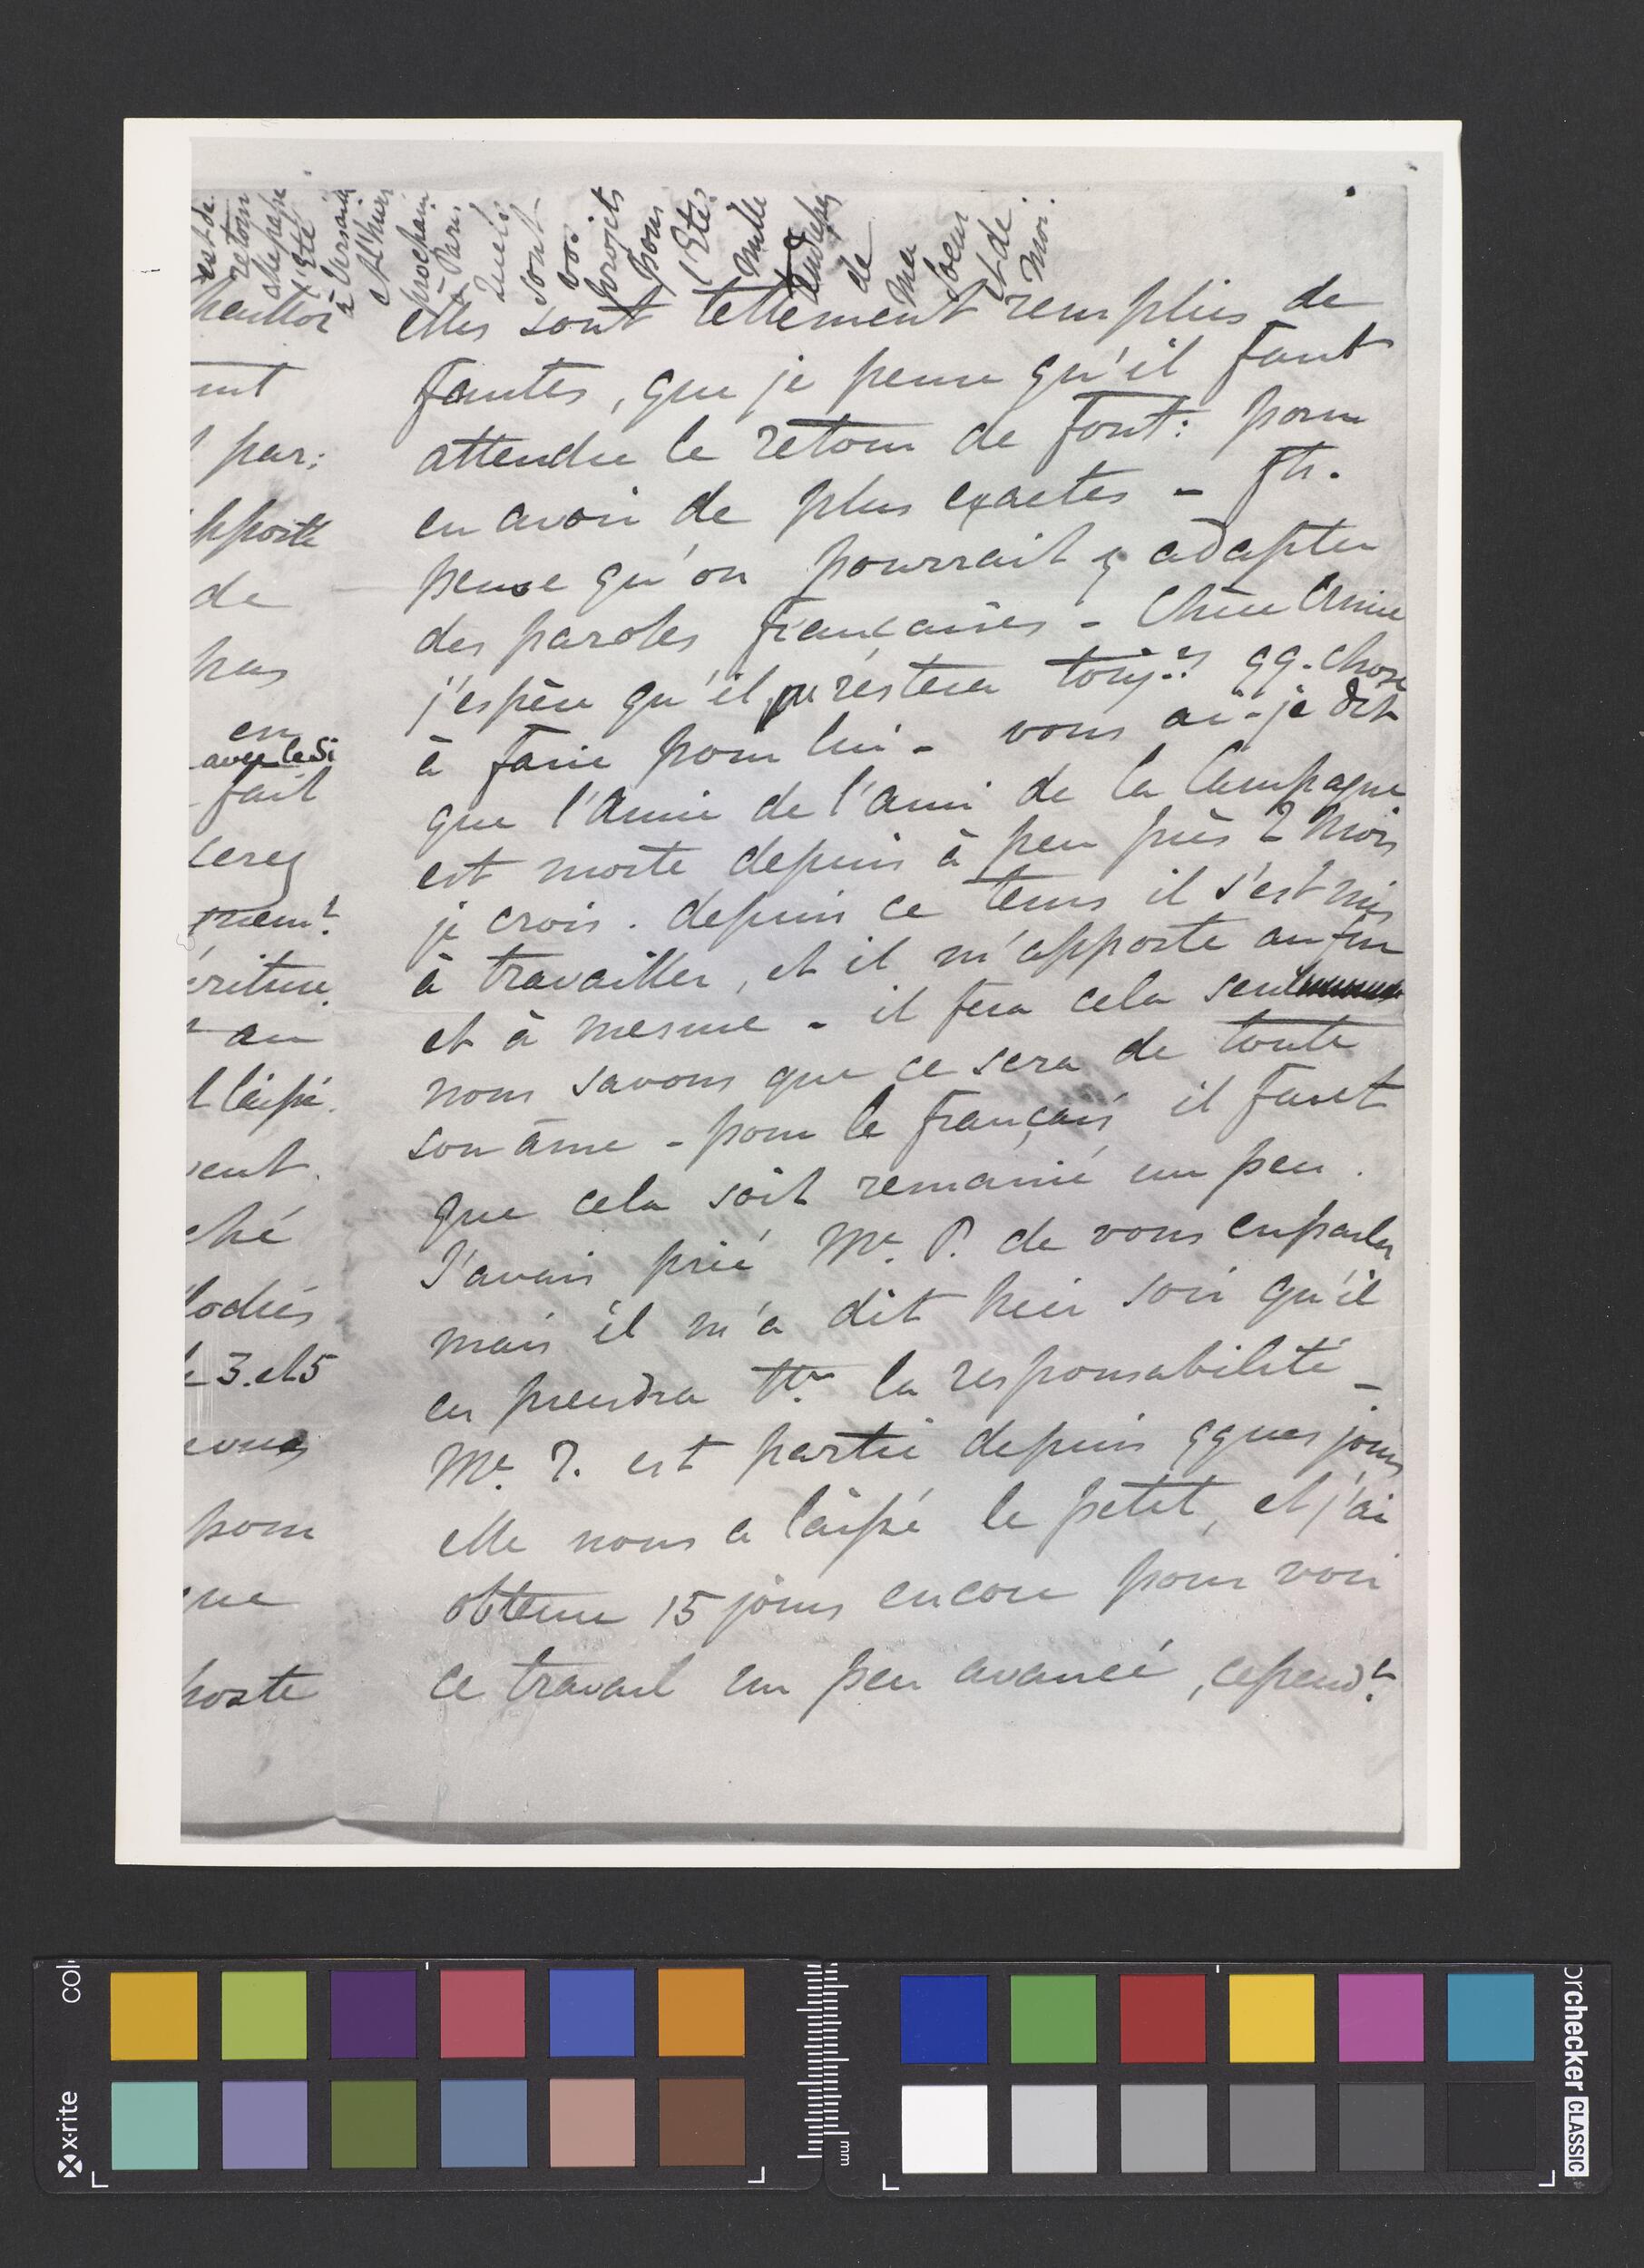 est de
retour
elle passe
l'Été
à Versaille
et l'hiver
prochain
à Paris.
Quels
sont
vos
projets
pour
l'Été?
mille
tendresses
de
ma
Soeur
et de
moi.
elles sont tellement remplies de
fautes, que je pense qu'il faut
attendre le retour de Font: pour
en avoir de plus exactes - Fr.
pense qu'on pourrait y adapter
des paroles françaises - Chère Amie
j'espère qu'il restera touj.rs qq. chose
à faire pour lui - vous ai-je dit
que l'Amie de l'ami de la Campagne
est morte depuis à peu près 2 mois
je crois. depuis ce tems il s'est mis
à travailler, et il m'apporte au fur
et à mesure - il fera cela seul
nous savons que ce sera de toute
son âme - pour le français il faut
que cela soit remanié un peu.
J'avais prié Mr. P. de vous en parler
mais il m'a dit hier soir qu'il
en prendra tte la responsabilité -
Me. P. est partie depuis qques jours
elle nous a laissé le petit, et j'ai
obtenu 15 jours encore pour voir
ce travail un peu avancé, cepend.t
ent
par:
pporte
de
pas
en
avec le Si
fait
cerez
mem.t
criture.
au
laissé.
vent.
ché
lodies
le 3. et 5
pour
que
poste
x-rite
col
mm
orchecker CLASSIC